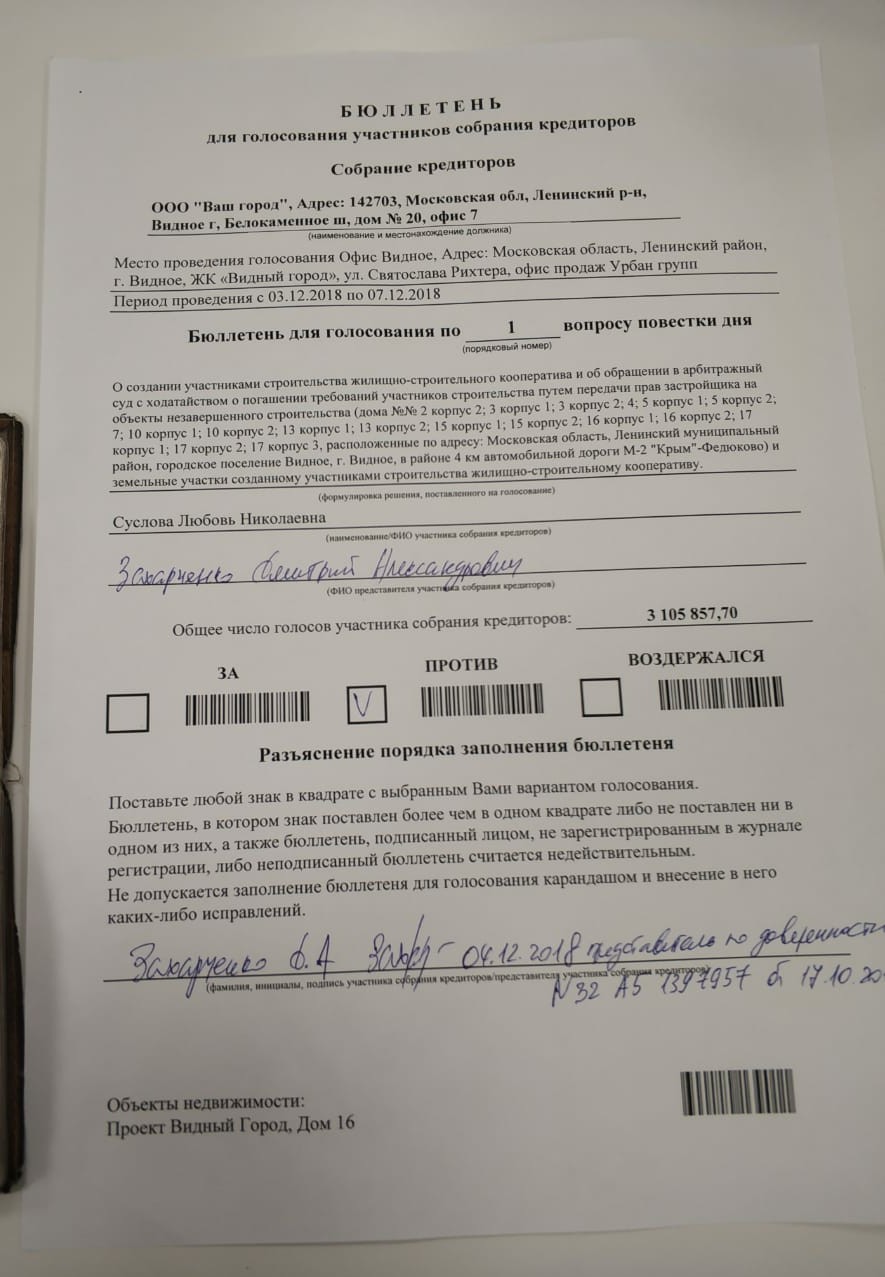 БЮЛЛЕТЕНЬ
для голосования участников собрания кредиторов
Собрание кредиторов
ООО "Ваш город", Адрес: 142703, Московская обл, Ленинский р-н,
Видное г, Белокаменное ш, дом № 20, офис 7
(наименование и местонахождение должника)
Место проведения голосования Офис Видное, Адрес: Московская область, Ленинский район,
г. Видное, ЖК «Видный город», ул. Святослава Рихтера, офис продаж Урбан групп
Период проведения с 03.12.2018 по 07.12.2018
Бюллетень для голосования по 1 вопросу повестки дня
(порядковый номер)
О создании участниками строительства жилищно-строительного кооператива и об обращении в арбитражный
суд с ходатайством о погашении требований участников строительства путем передачи прав застройщика на
объекты незавершенного строительства (дома №№ 2 корпус 2; 3 корпус 1; 3 корпус 2; 4; 5 корпус 1; 5 корпус 2;
7; 10 корпус 1; 10 корпус 2; 13 корпус 1; 13 корпус 2; 15 корпус 1; 15 корпус 2; 16 корпус 1; 16 корпус 2; 17
корпус 1; 17 корпус 2; 17 корпус 3, расположенные по адресу: Московская область, Ленинский муниципальный
район, городское поселение Видное, г. Видное, в районе 4 км автомобильной дороги М-2 "Крым"-Федюково) и
земельные участки созданному участниками строительства жилищно-строительному кооперативу.
(формулировка решения, поставленного на голосование)
Суслова Любовь Николаевна
(наименование/ФИО участника собрания кредиторов)
Захарченко Дмитрий Александрович
(ФИО представителя участника собрания кредиторов)
Общее число голосов участника собрания кредиторов: 3 105 857,70
ЗА ПРОТИВ ВОЗДЕРЖАЛСЯ
V
Разъяснение порядка заполнения бюллетеня
Поставьте любой знак в квадрате с выбранным Вами вариантом голосования.
Бюллетень, в котором знак поставлен более чем в одном квадрате либо не поставлен ни в
одном из них, а также бюллетень, подписанный лицом, не зарегистрированным в журнале
регистрации, либо неподписанный бюллетень считается недействительным.
Не допускается заполнение бюллетеня для голосования карандашом и внесение в него
каких-либо исправлений.
Захарченко Д.А 04.12.2018 представитель по доверенности
(фамилия, инициалы, подпись участника собрания кредиторов/представителя участника собрания кредиторов)
N 32 АБ 1397957 от 17.10.20
Объекты недвижимости:
Проект Видный Город, Дом 16